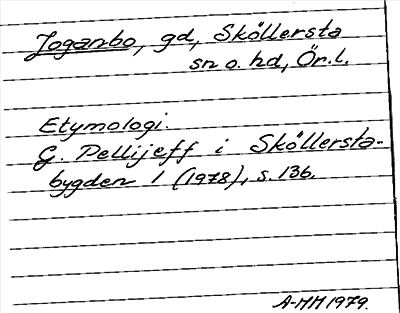 Joganbo, gd, Sköllersta
sn o. hd, Ör. l.
Etymologi.
G. Pellijeff i Sköllersta-
bygden 1 (1978), s. 136.
A-MM 1979.